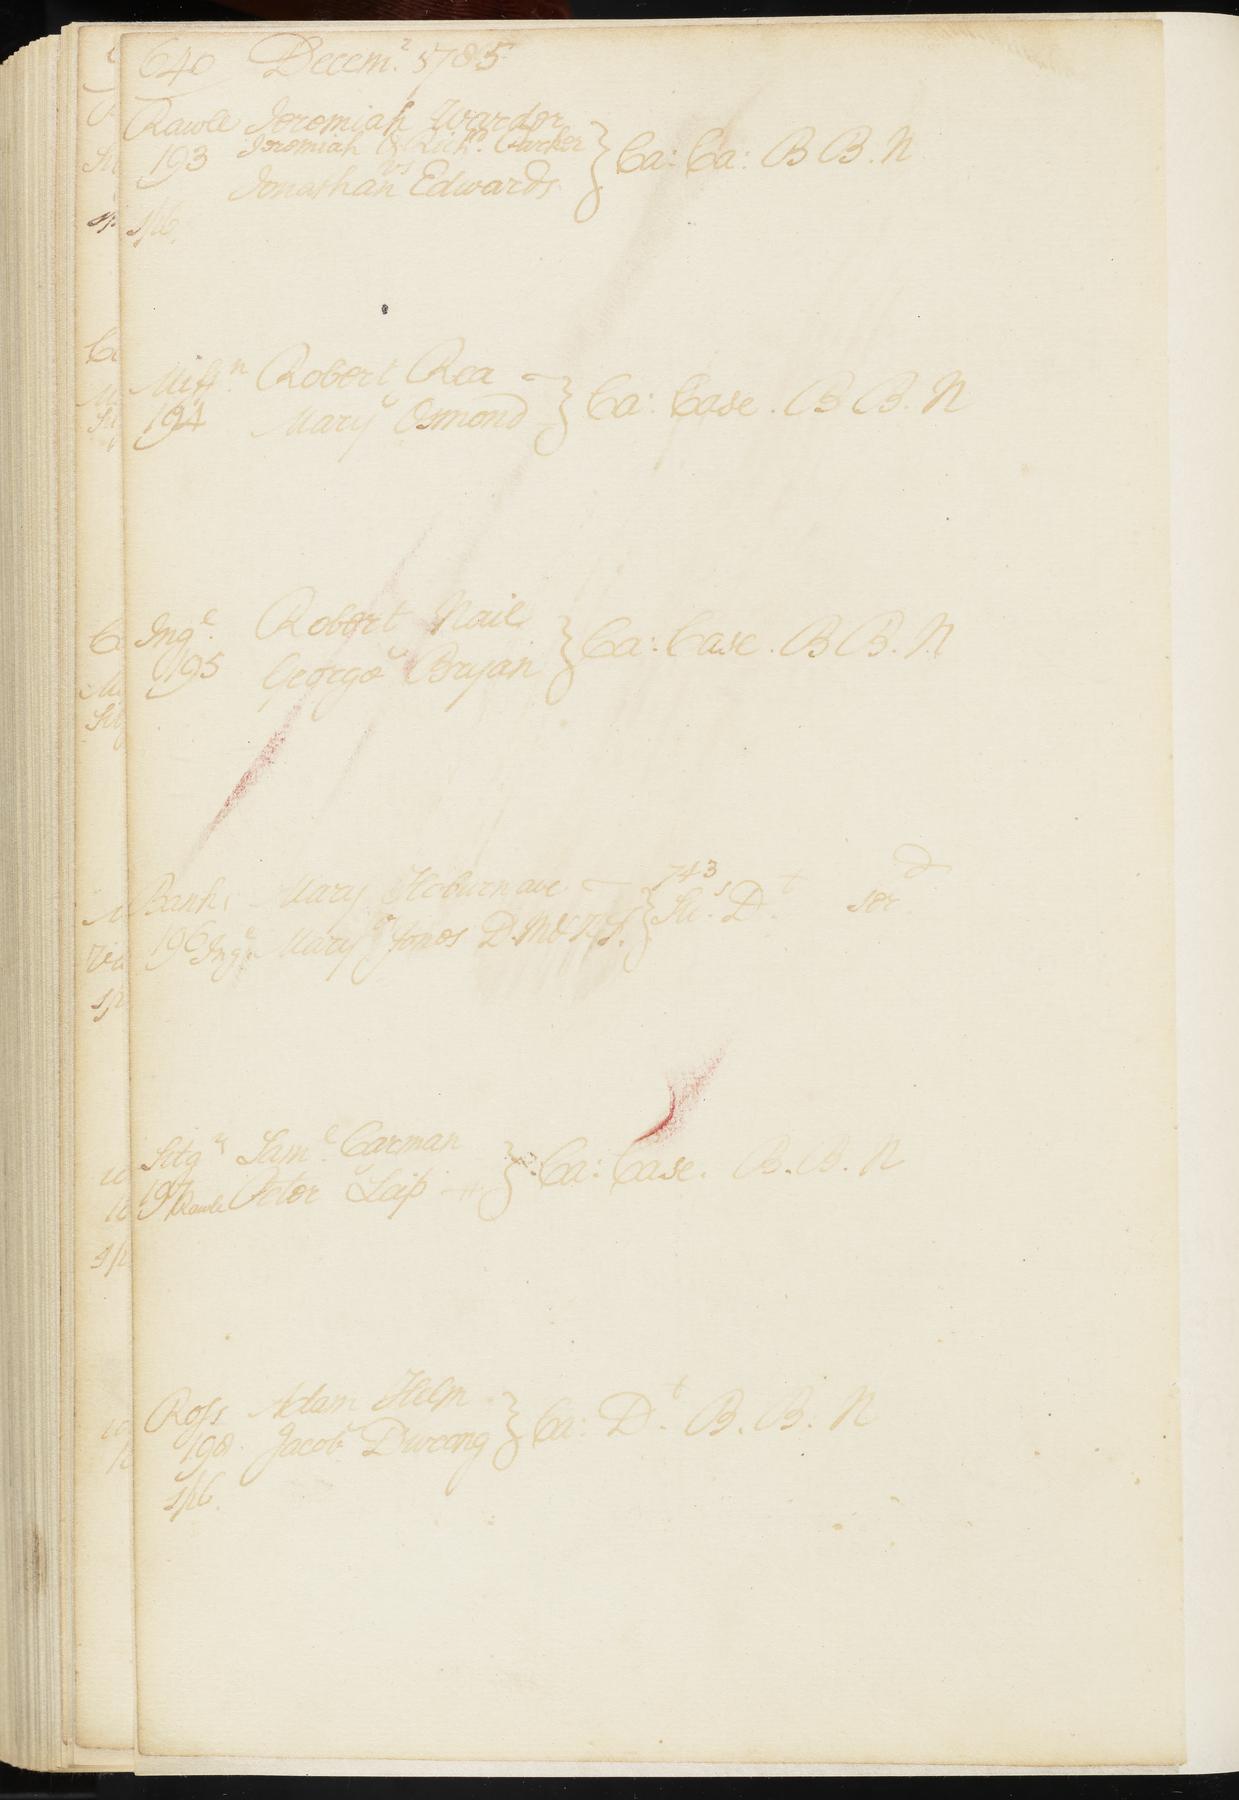 640 Decem.r 1785
Rawle Jeremiah Warder
Jeremiah & Rich.d Parker
193 vs } Ca: Ca: B B. N
Jonathan Edwards
1/6.
Miff.n Robert Rea
194 Mary Osmond } Ca: Case. B B. N
Ing.l Robert Nail
195 George Bryan } Ca: Case. B B. N
Banks Mary 743
196 Ing.l Mary Jones } D.t ser.d
Sitg.s Sam.l Carman
197 Rawle Peter Leip } Ca: Case. B. B. N
Ross Adam Helm
198. Jacob Dweang } Ca: D.t B. B. N
1/6.